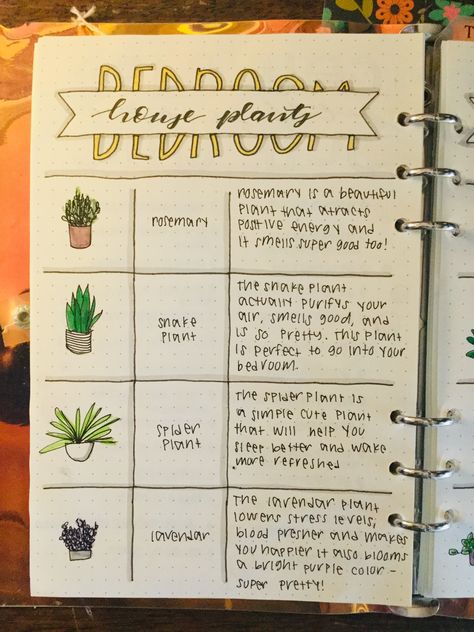 BEDROOM
house plants
rosemary
rosemary is a beautiful
plant that atracts
positive energy and
it smells super good too!
snake
plant
The snake plant
actualy purifys your
air, smells good, and
is so pretty. This plant
is perfect to go into your
bedroom.
spider
plant
The spider plant is
a simple cute plant
that will help you
sleep better and wake
more refreshed
lavendar
The lavendar plant
lowers stress levels,
blood presher and makes
you happier it also blooms
a bright purple color -
super pretty!